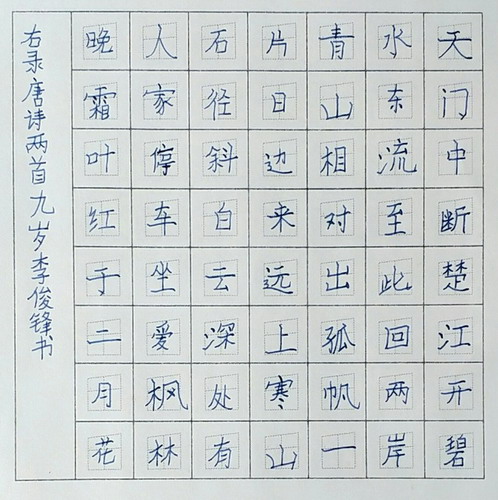 天门中断楚江开碧
水东流至此回两岸
青山相对出孤帆一
片日边来远上寒山
石径斜白云深处有
人家停车坐爱枫林
晚霜叶红于二月花
右录唐诗两首九岁李俊锋书